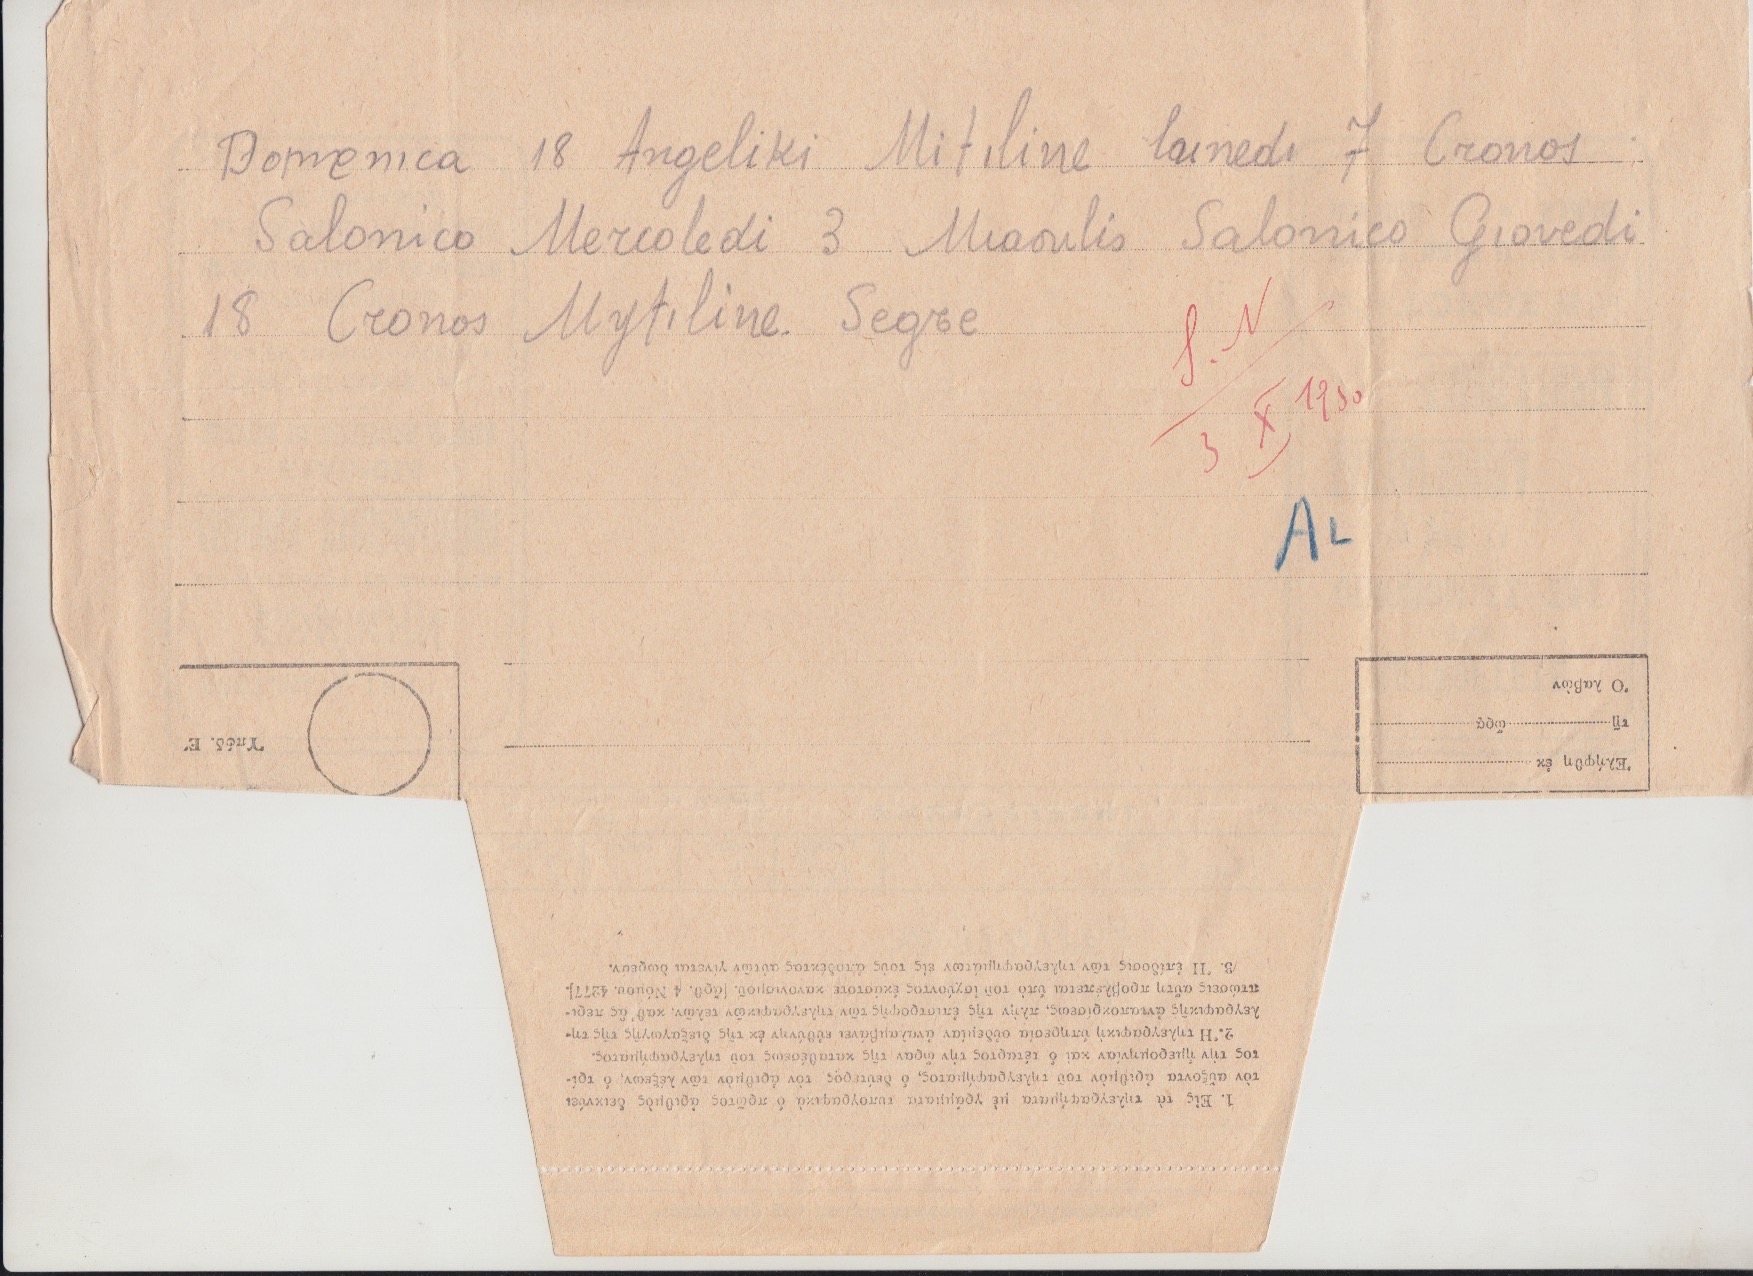 Domenica 18 Angeliki Mitiline lunedi 7 Cronos
Salonico Mercoledi 3 Miaoulis Salonico Giovedi
18 Cronos Mytiline. Segre
S. N
3 X 1930
AL
Ὑπόδ. Ε΄
Ἐλήφθη ἐκ
τῇ ὥρᾳ
Ὁ λαβὼν
1. Εἰς τὰ τηλεγραφήματα μὲ γράμματα τυπογραφικὰ ὁ πρῶτος ἀριθμὸς δεικνύει
τὸν αὔξοντα ἀριθμὸν τοῦ τηλεγραφήματος, ὁ δεύτερος τὸν ἀριθμὸν τῶν λέξεων, ὁ τρί-
τος τὴν ἡμερομηνίαν καὶ ὁ τέταρτος τὴν ὥραν τῆς καταθέσεως τοῦ τηλεγραφήματος.
2. Ἡ τηλεγραφικὴ ὑπηρεσία οὐδεμίαν ἀναλαμβάνει εὐθύνην ἐκ τῆς διεξαγωγῆς τῆς τη-
λεγραφικῆς ἀνταποκρίσεως, πλὴν τῆς ἐπιστροφῆς τῶν τηλεγραφικῶν τελῶν, καθ' ἃς περι-
πτώσεις αὕτη προβλέπεται ὑπὸ τοῦ ἰσχύοντος ἑκάστοτε κανονισμοῦ. [ἄρθ. 4 Νόμου. 4277].
3. Ἡ ἐπίδοσις τῶν τηλεγραφημάτων εἰς τοὺς ἀποδέκτας αὐτῶν γίνεται δωρεάν.